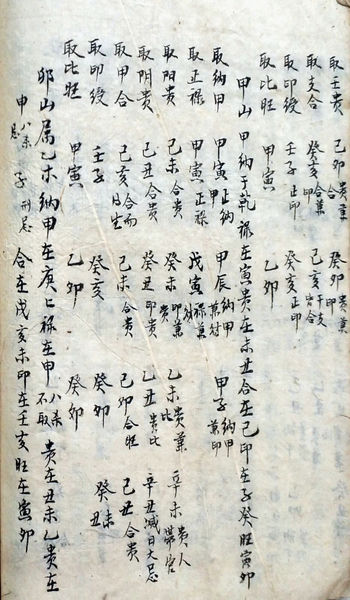 取壬貴 己卯貴合兼 癸卯貴印
取支合 癸亥合兼印 己亥干支皆合
取印綬 壬子正印 癸亥正印
取比旺 甲寅 乙卯
甲山 甲納于乾祿在寅貴在未丑合在己印在子癸旺寅卯
取納甲 甲寅正納甲 甲辰納甲 甲子納甲兼印
取正祿 甲寅正祿 戊寅祿兼
取陽貴 己未合貴 癸未印兼貴 乙未貴兼比 辛未貴人帶官
取阴貴 己丑合貴 癸丑印貴 乙丑貴比 辛丑減日大忌
取甲合 己亥合而日生 己未合貴 己卯合旺 己丑合貴
取印綬 壬子 癸亥 癸卯 癸丑未
取比旺 甲寅 乙卯 癸卯
卯山属乙木納甲在庚乙祿在申八杀不取 貴在丑未乙貴在
申八杀忌 子刑忌 合在戌亥未印在壬亥旺在寅卯